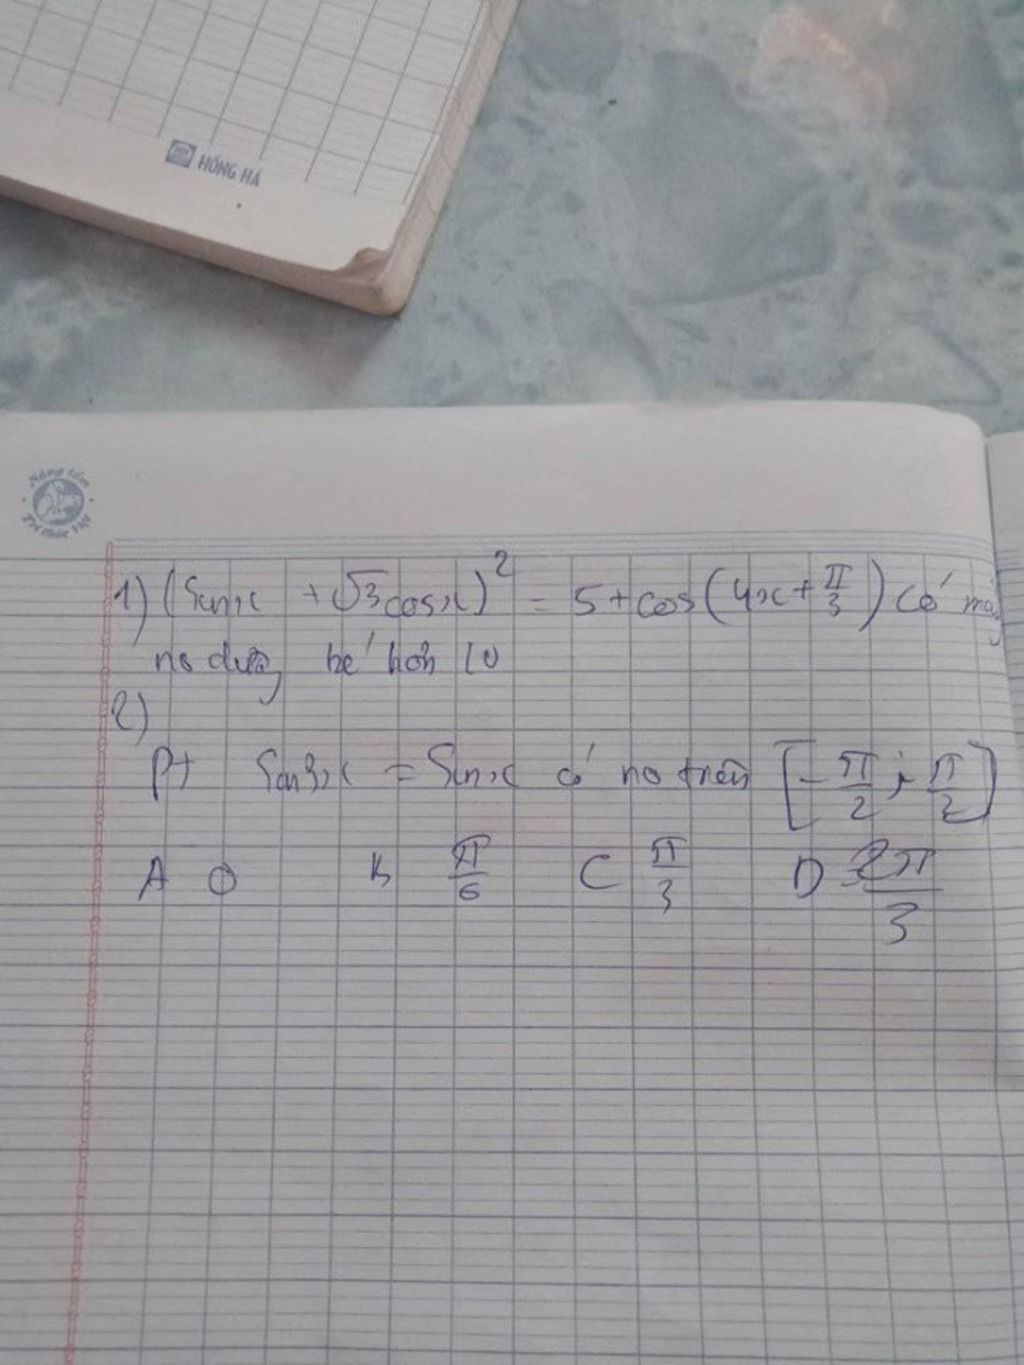 HỒNG HÀ
Nâng tầm
Tri thức Việt
1) (Sinx + √3cosx)² = 5+cos(4x+π/3) Có mấy
no dương bé hơn 10
2)
Pt Sin3x = Sinx có no trên [-π/2; π/2]
A 0 B π/6 C π/3 D 2π/3